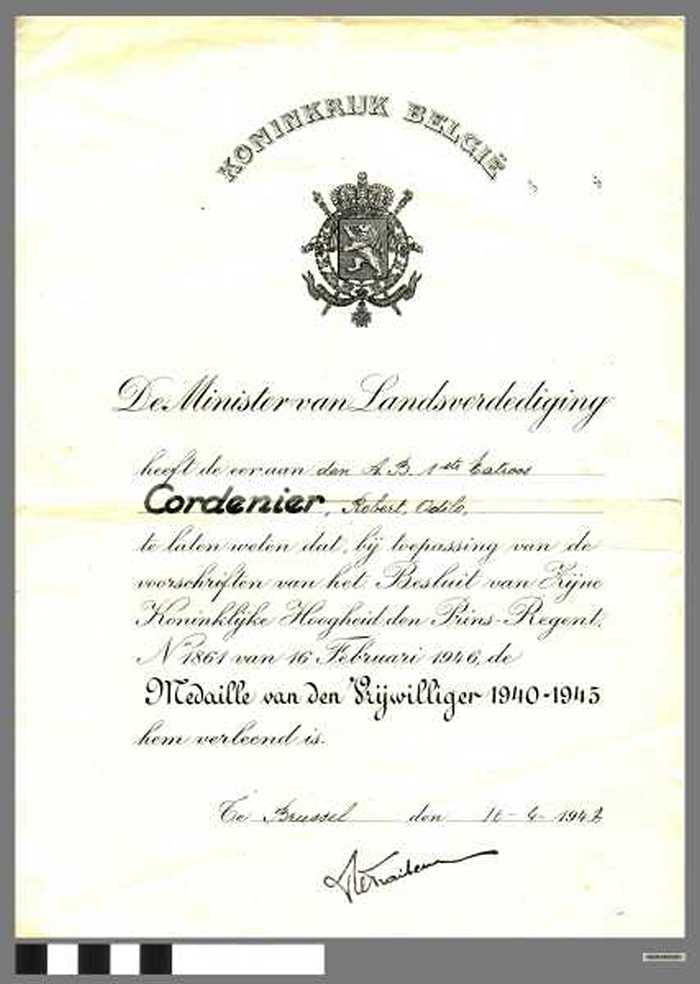 KONINKRIJK BELGIË
De Minister van Landsverdediging
heeft de eer aan den A.B. 1ste Matroos
Cordenier, Robert, Odilo,
te laten weten dat, bij toepassing van de
voorschriften van het Besluit van Zijne
Koninklijke Hoogheid den Prins-Regent,
Nr 1861 van 16 Februari 1946, de
Medaille van den Vrijwilliger 1940-1945
hem verleend is.
Te Brussel den 16-4-1947